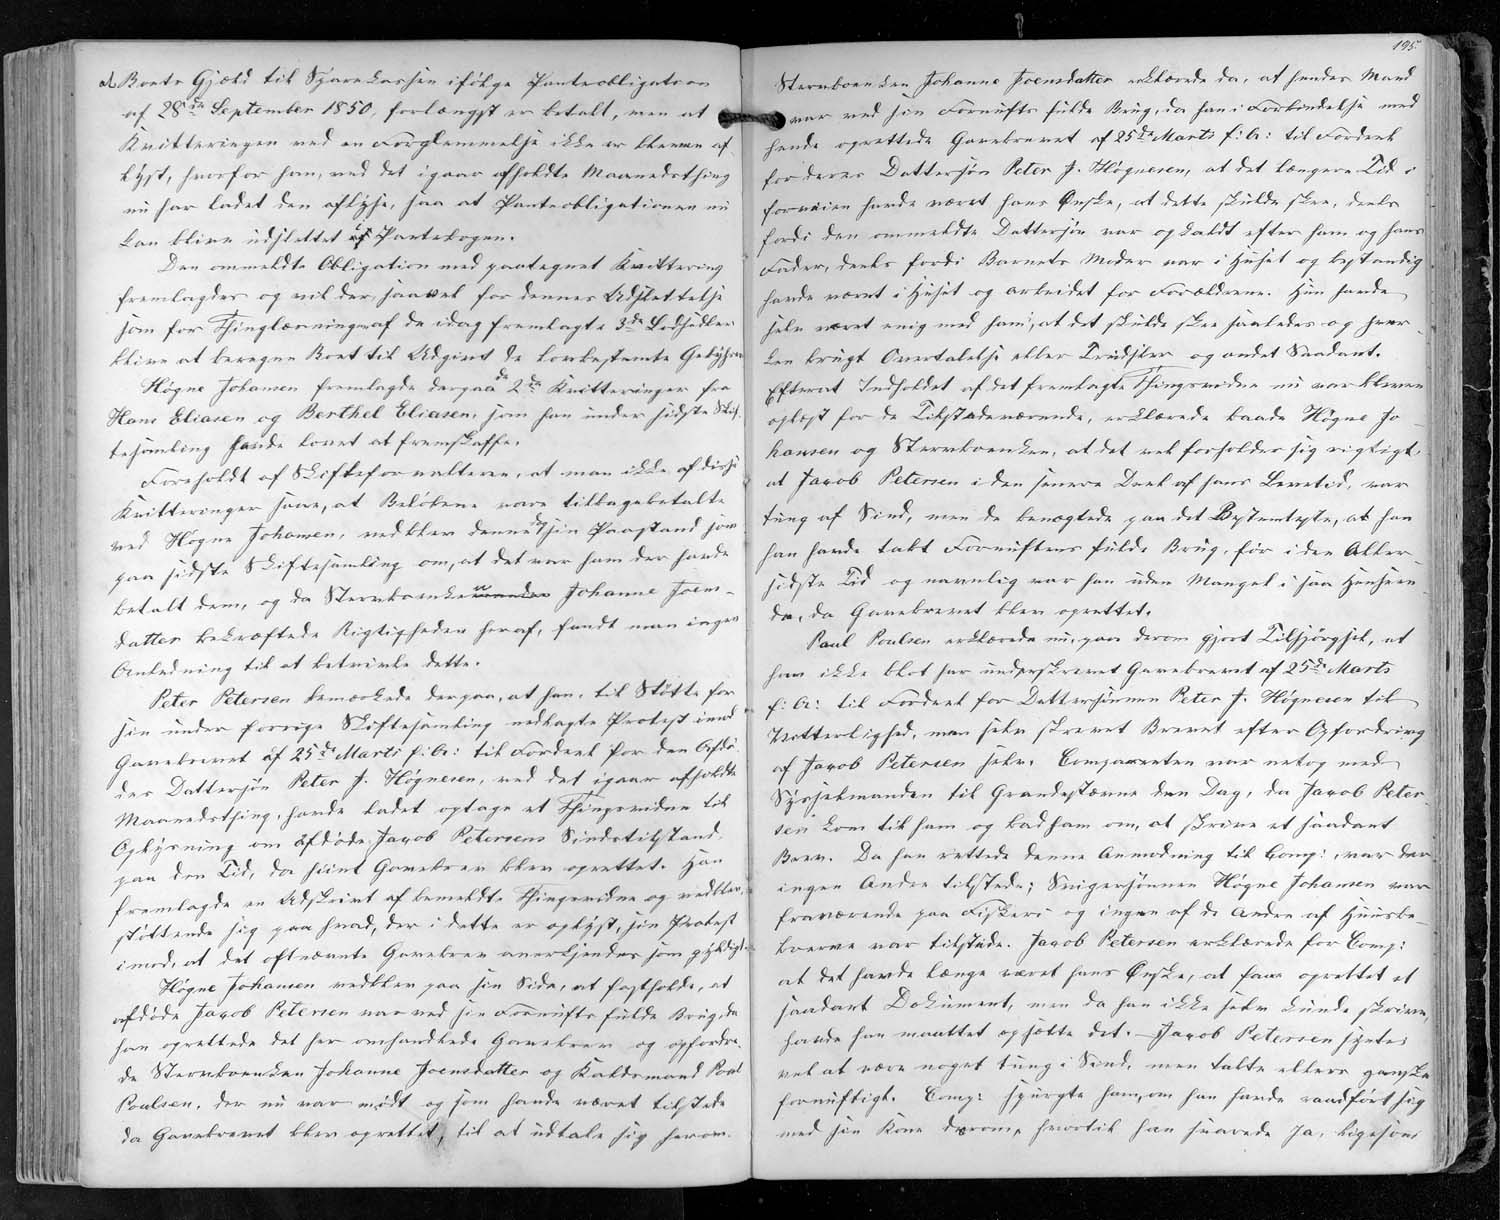 at Boets Gjæld til Sparekassen ifølge Panteobligation
af 28de September 1850, forlængst er betalt, men at
Kvitteringen ved en Forglemmelse ikke er bleven af-
lyst, hvorfor han, ved det igaar afholdte Maanedsthing
nu har ladet den aflyse, saa at Panteobligationen nu
kan blive udslettet af Pantebogen.
Den ommeldte Obligation med paategnet Kvittering
fremlagdes og vil der saavel for dennes Udslettelse
som for Thinglæsningen af de idag fremlagte 3de Lodsedler
blive at beregne Boet til Udgivt de lovbestemte Gebyhrer
Høgne Johansen fremlagde derpaa de 2de Kvitteringer fra
Hans Eliasen og Berthel Eliasen, som han under sidste Skif-
tesamling havde lovet at fremskaffe.
Foreholdt af Skifteforvalteren, at man ikke af disse
Kvitteringer saae, at Beløbene vare tilbagebetalte
ved Høgne Johansen, vedblev denne sin Paastand som
paa sidste Skiftesamling om, at det var ham der havde
betalt dem, og da Stervboenken Johanne Joens-
datter bekræftede Rigtigheden heraf, fandt man ingen
Anledning til at betvivle dette.
Peter Petersen bemærkede derpaa, at han, til Støtte for
sin under forrige Skiftesamling nedlagte Protest imod
Gavebrevet af 25de Marts f: A: til Fordeel for den Afdø-
des Dattersøn Peter J. Høgnesen, ved det igaar afholdte
Maanedsthing, havde ladet optage et Thingsvidne til
Oplysning om afdøde Jacob Petersens Sindstilstand
paa den Tid, da hiint Gavebrev blev oprettet. Han
fremlagde en Udskrivt af bemeldte Thingsvidne og vedblev,
støttende sig paa hvad, der i dette er oplyst, sin Protest
imod, at det oftnævnte Gavebrev anerkjendes som gyldigt.
Høgne Johansen vedblev paa sin Side, at fastholde, at
afdøde Jacob Petersen var ved sin Fornufts fulde Brug, da
han oprettede det her omhandlede Gavebrev og opfordre-
de Stervboenken Johanne Joensdatter og Kaldsmand Poul
Poulsen, der nu var mødt og som havde været tilstede
da Gavebrevet blev oprettet, til at udtale sig herom.
195.
Stervboenken Johanne Joensdatter erklærede da, at hendes Mand
var ved sin Fornufts fulde Brug, da han i Forbindelse med
hende oprettede Gavebrevet af 25de Marts f: A: til Fordeel
for deres Dattersøn Peter J. Høgnesen, at det længere Tid i
forveien havde været hans Ønske, at dette skulde skee, deels
fordi den ommeldte Dattersøn var opkaldt efter ham og hans
Fader, deels fordi Barnets Moder var i Huset og bestandig
havde været i Huset og arbeidet for Forældrene. Hun havde
selv været enig med ham, at det skulde skee saaledes og hver-
ken brugt Overtalelse eller Trudsler og andet Saadant.
Efterat Indholdet af det fremlagte Thingsvidne nu var bleven
oplæst for de Tilstedeværende, erklærede baade Høgne Jo-
hansen og Stervboenken, at det vel forholder sig rigtigt,
at Jacob Petersen i den senere Deel af hans Levetid, var
tung af Sind, men de benægtede paa det Bestemteste, at han
han havde tabt Fornuftens fulde Brug, før i den Aller-
sidste Tid og navnlig var han uden Mangel i saa Henseen-
de, da Gavebrevet blev oprettet.
Paul Poulsen erklærede nu, paa derom gjort Tilspørgsel, at
han ikke blot har underskrevet Gavebrevet af 25de Marts
f: A: til Fordeel for Dattersønnen Peter J. Høgnesen til
Vitterlighed, men selv skrevet Brevet efter Opfordring
af Jacob Petersen selv. Comparenten var netop med
Sysselmanden til Grandestævne den Dag, da Jacob Peter-
sen kom til ham og bad ham om, at skrive et saadant
Brev. Da han rettede denne Anmodning til Comp:, var der
ingen Andre tilstede; Svigersønnen Høgne Johansen var
fraværende paa Fiskeri og ingen af de Andre af Huusbe-
boerne var tilstede. Jacob Petersen erklærede for Comp:
at det havde længe været hans Ønske, at faae oprettet et
saadant Dokument, men da han ikke selv kunde skrive,
havde han maattet opsætte det. – Jacob Petersen syntes
vel at være noget tung i Sind, men talte ellers ganske
fornuftigt. Comp: spurgte ham, om han havde raadført sig
med sin Kone derom, hvortil han svarede Ja, ligesom